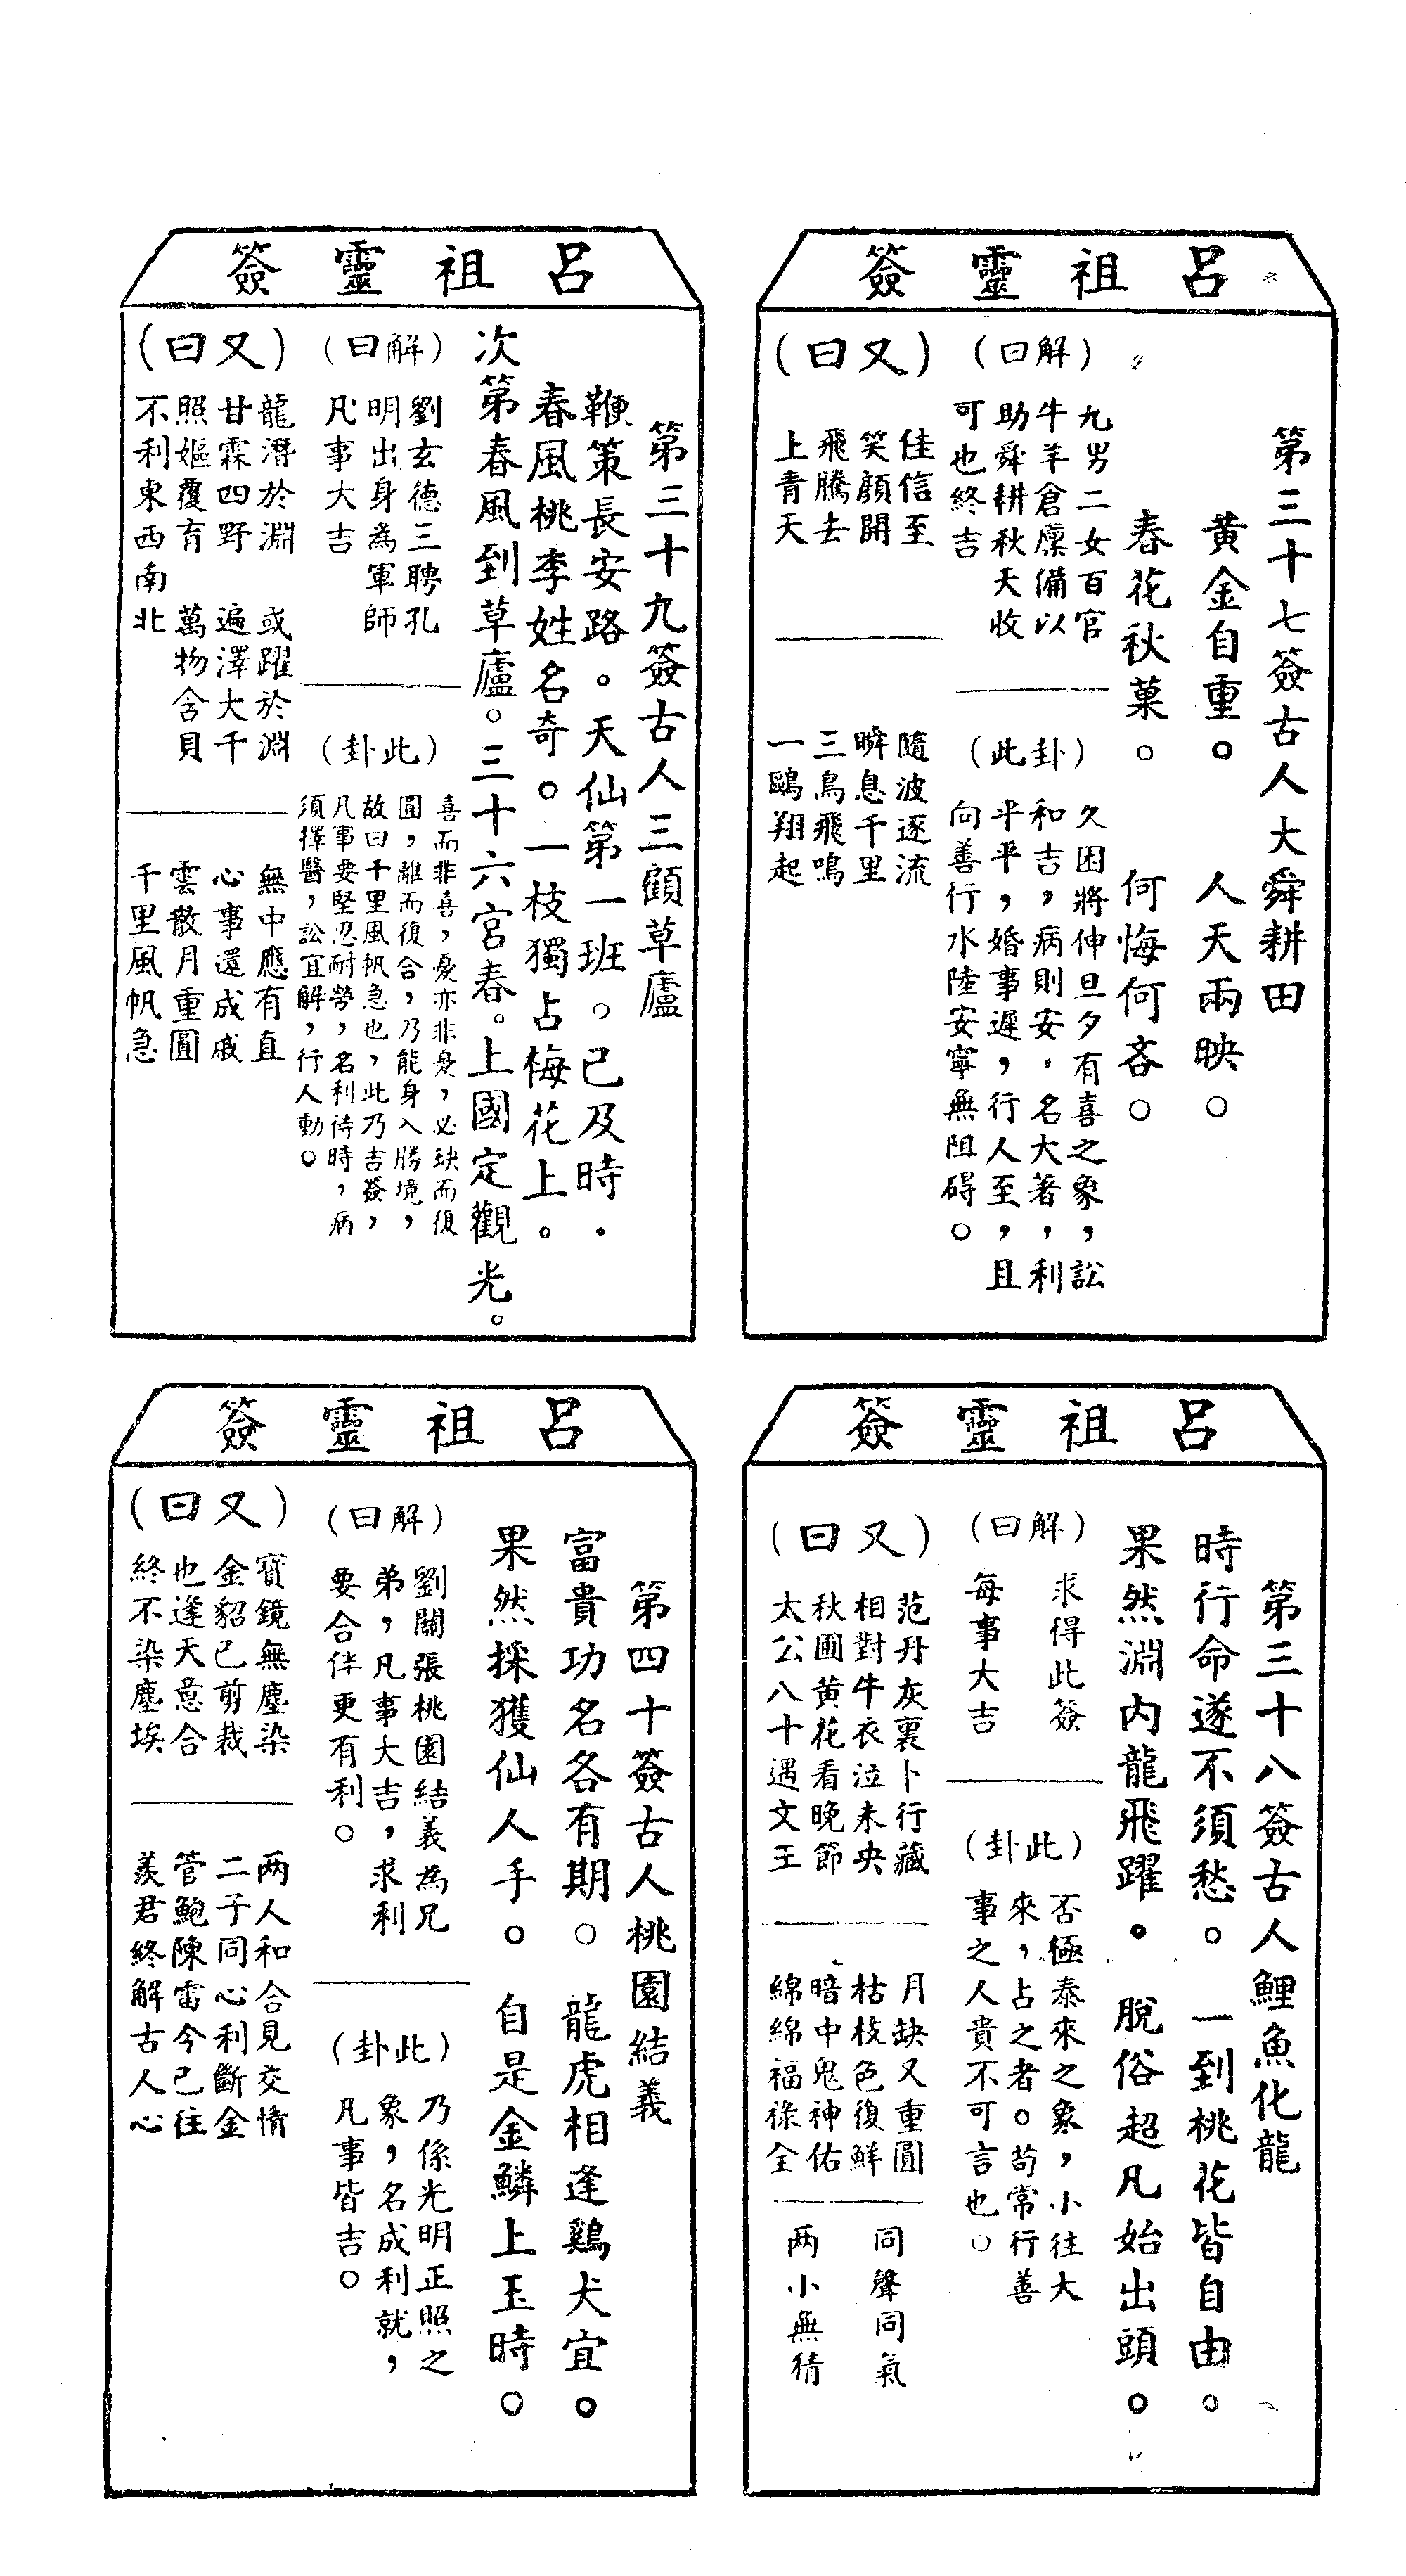 呂祖靈簽
第三十七簽古人大舜耕田
黃金自重。人天兩映。
春花秋菓。何悔何吝。
(解曰)
九男二女百官
牛羊倉廩備以
助舜耕秋天收
可也終吉
(卦此)
久困將伸旦夕有喜之象，訟
和吉，病則安，名大著，利
平平，婚事遲，行人至，且
向善行水陸安寧無阻碍。
(又曰)
佳信至
笑顏開
飛騰去
上青天
隨波逐流
瞬息千里
三鳥飛鳴
一鷗翔起
呂祖靈簽
第三十八簽古人鯉魚化龍
時行命遂不須愁。一到桃花皆自由。
果然淵內龍飛躍。脫俗超凡始出頭。
(解曰)
求得此簽
每事大吉
(此卦)
否極泰來之象，小往大
來，占之者。苟常行善
事之人貴不可言也。
(又曰)
范丹灰裏卜行藏
相對牛衣泣未央
秋圃黃花看晚節
太公八十遇文王
月缺又重圓
枯枝色復鮮
暗中鬼神佑
綿綿福祿全
同聲同氣
两小無猜
呂祖靈簽
第三十九簽古人三顧草廬
鞭策長安路。天仙第一班。已及時．
春風桃李姓名奇。一枝獨占梅花上。
次第春風到草廬。三十六宮春。上國定觀光。
(解曰)
劉玄德三聘孔
明出身為軍師
凡事大吉
(此卦)
喜而非喜，憂亦非憂，必玦而復
圓，離而復合，乃能身入勝境，
故曰千里風帆急也，此乃吉簽，
凡事要堅忍耐勞，名利待時，病
須擇醫，訟宜解，行人動。
(又曰)
龍潛於淵　或躍於淵
甘霖四野　遍澤大千
照嫗覆育　萬物含貝
不利東西南北
無中應有直
心事還成戚
雲散月重圓
千里風帆急
呂祖靈簽
第四十簽古人桃園結義
富貴功名各有期。龍虎相逢鷄犬宜。
果然採獲仙人手。自是金鱗上玉時。
(解曰)
劉關張桃園結義為兄
弟，凡事大吉，求利
要合伴更有利。
(此卦)
乃係光明正照之
象，名成利就，
凡事皆吉。
(又曰)
寶鏡無塵染
金貂已剪裁
也遂天意合
終不染塵埃
两人和合見交情
二子同心利斷金
管鮑陳雷今已往
羨君終解古人心